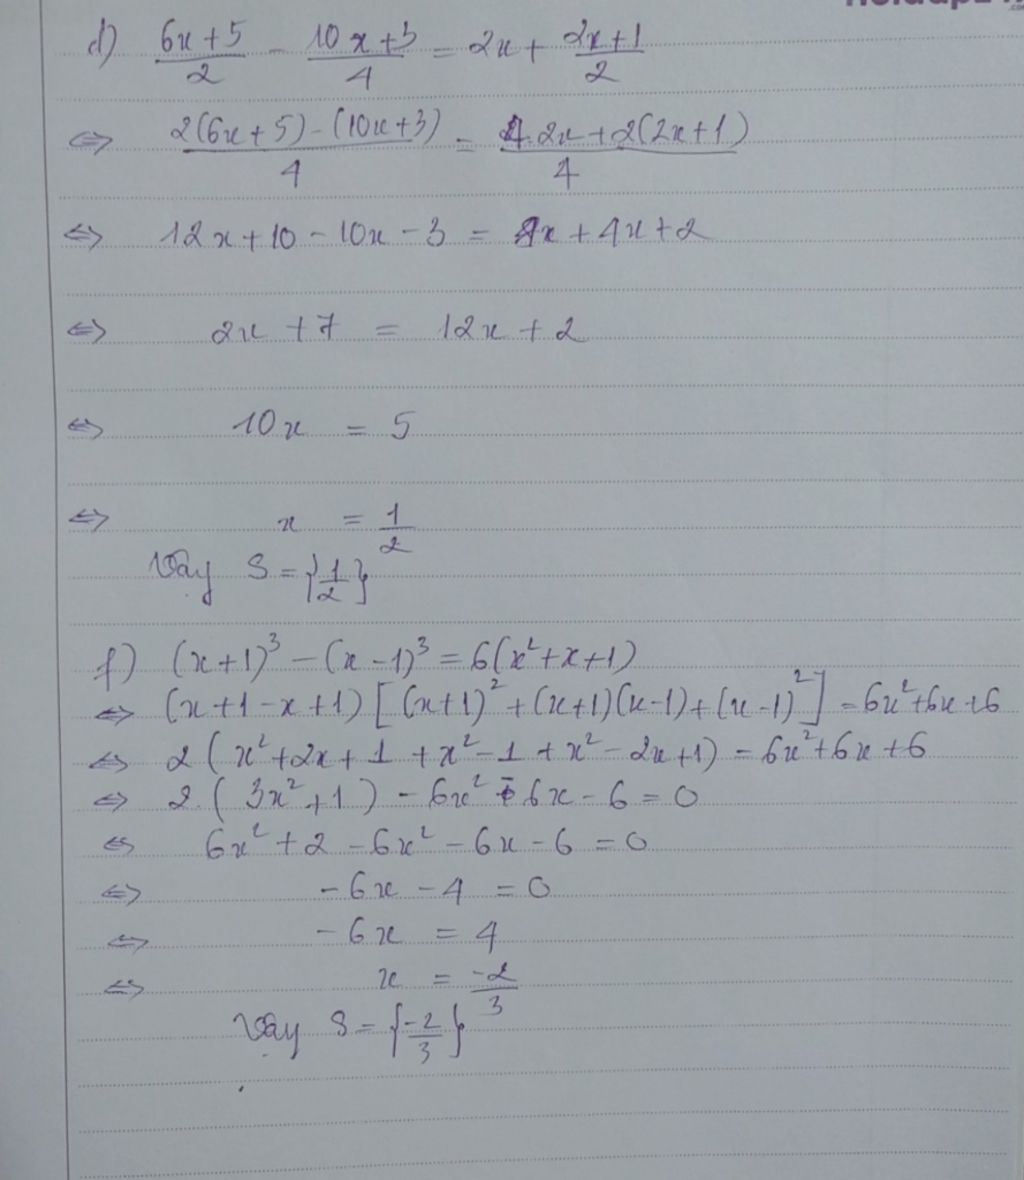 d) (6x+5)/2 - (10x+3)/4 = 2x + (2x+1)/2
⇔ (2(6x+5) - (10x+3))/4 = (4.2x + 2(2x+1))/4
⇔ 12x + 10 - 10x - 3 = 8x + 4x + 2
⇔ 2x + 7 = 12x + 2
⇔ 10x = 5
⇔ x = 1/2
Vậy S = {1/2}
f) (x+1)³ - (x-1)³ = 6(x²+x+1)
⇔ (x+1-x+1)[(x+1)² + (x+1)(x-1) + (x-1)²] = 6x²+6x+6
⇔ 2(x²+2x+1+x²-1+x²-2x+1) = 6x²+6x+6
⇔ 2.(3x²+1) - 6x² - 6x - 6 = 0
⇔ 6x² + 2 - 6x² - 6x - 6 = 0
⇔ -6x - 4 = 0
⇔ -6x = 4
⇔ x = -2/3
Vậy S = {-2/3}